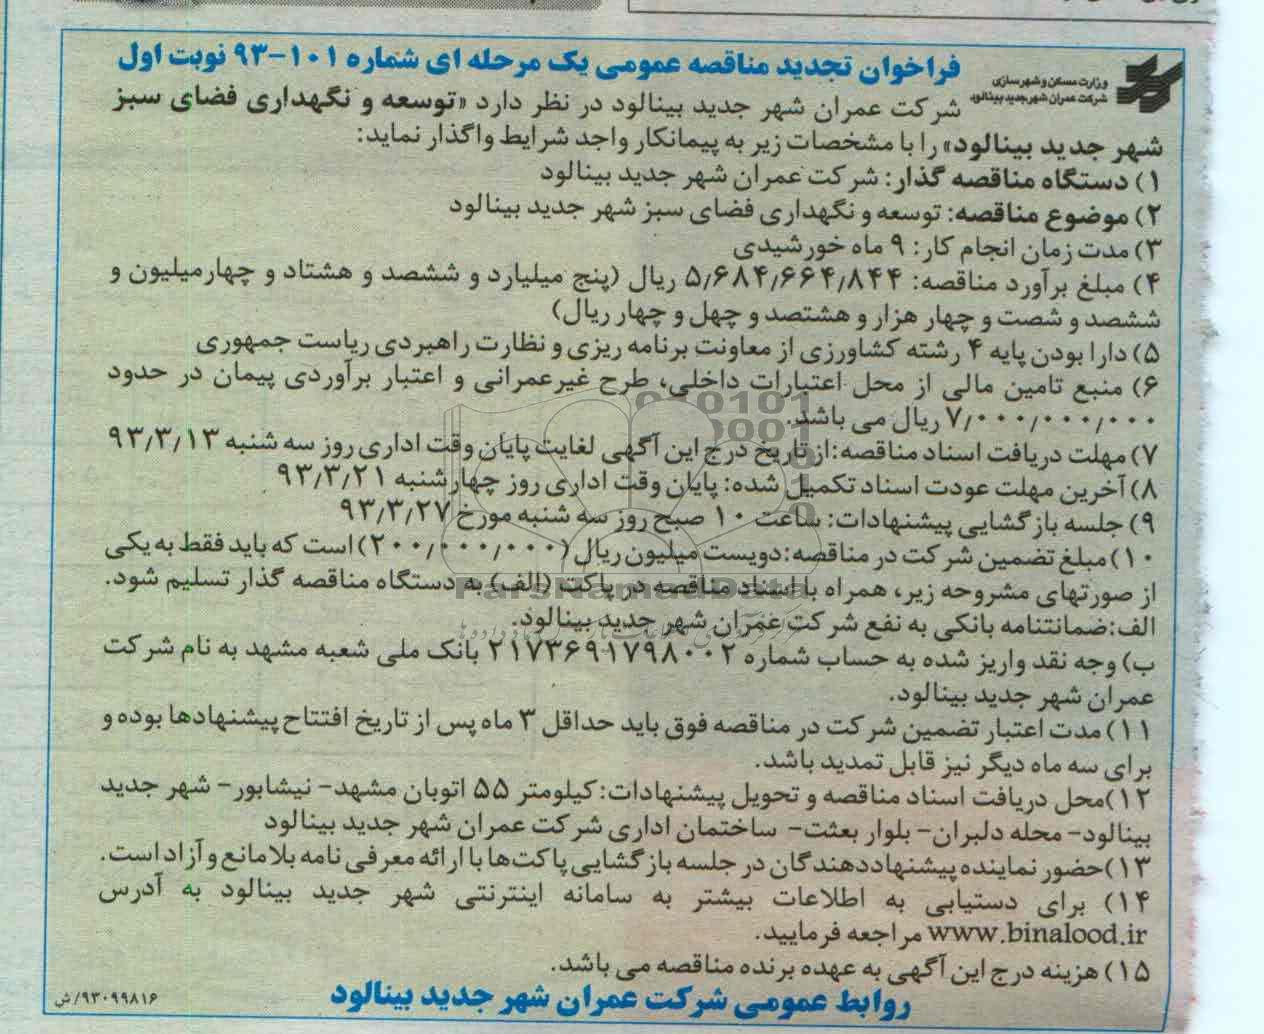 فراخوان تجدید مناقصه عمومی یک مرحله ای شماره ۱۰۱-۹۳ نوبت اول
وزارت مسکن و شهرسازی
شرکت عمران شهر جدید بینالود
شرکت عمران شهر جدید بینالود در نظر دارد «توسعه و نگهداری فضای سبز
شهر جدید بینالود» را با مشخصات زیر به پیمانکار واجد شرایط واگذار نماید:
۱) دستگاه مناقصه گذار: شرکت عمران شهر جدید بینالود
۲) موضوع مناقصه: توسعه و نگهداری فضای سبز شهر جدید بینالود
۳) مدت زمان انجام کار: ۹ ماه خورشیدی
۴) مبلغ برآورد مناقصه: ۵٫۶۸۴٫۶۶۴٫۸۴۴ ریال (پنج میلیارد و ششصد و هشتاد و چهارمیلیون و
ششصد و شصت و چهار هزار و هشتصد و چهل و چهار ریال)
۵) دارا بودن پایه ۴ رشته کشاورزی از معاونت برنامه ریزی و نظارت راهبردی ریاست جمهوری
۶) منبع تامین مالی از محل اعتبارات داخلی، طرح غیرعمرانی و اعتبار برآوردی پیمان در حدود
۷٫۰۰۰٫۰۰۰٫۰۰۰ ریال می باشد.
۷) مهلت دریافت اسناد مناقصه: از تاریخ درج این آگهی لغایت پایان وقت اداری روز سه شنبه ۹۳٫۳٫۱۳
۸) آخرین مهلت عودت اسناد تکمیل شده: پایان وقت اداری روز چهارشنبه ۹۳٫۳٫۲۱
۹) جلسه بازگشایی پیشنهادات: ساعت ۱۰ صبح روز سه شنبه مورخ ۹۳٫۳٫۲۷
۱۰) مبلغ تضمین شرکت در مناقصه: دویست میلیون ریال (۲۰۰٫۰۰۰٫۰۰۰) است که باید فقط به یکی
از صورتهای مشروحه زیر، همراه با اسناد مناقصه در پاکت (الف) به دستگاه مناقصه گذار تسلیم شود.
الف: ضمانتنامه بانکی به نفع شرکت عمران شهر جدید بینالود.
ب) وجه نقد واریز شده به حساب شماره ۲۱۷۳۶۹۱۷۹۸۰۰۲ بانک ملی شعبه مشهد به نام شرکت
عمران شهر جدید بینالود.
۱۱) مدت اعتبار تضمین شرکت در مناقصه فوق باید حداقل ۳ ماه پس از تاریخ افتتاح پیشنهادها بوده و
برای سه ماه دیگر نیز قابل تمدید باشد.
۱۲) محل دریافت اسناد مناقصه و تحویل پیشنهادات: کیلومتر ۵۵ اتوبان مشهد- نیشابور- شهر جدید
بینالود- محله دلبران- بلوار بعثت- ساختمان اداری شرکت عمران شهر جدید بینالود
۱۳) حضور نماینده پیشنهاددهندگان در جلسه بازگشایی پاکت‌ها با ارائه معرفی نامه بلامانع و آزاد است.
۱۴) برای دستیابی به اطلاعات بیشتر به سامانه اینترنتی شهر جدید بینالود به آدرس
www.binalood.ir مراجعه فرمایید.
۱۵) هزینه درج این آگهی به عهده برنده مناقصه می باشد.
روابط عمومی شرکت عمران شهر جدید بینالود
۹۳۰۹۹۸۱۶/ ش
ParsNamadData